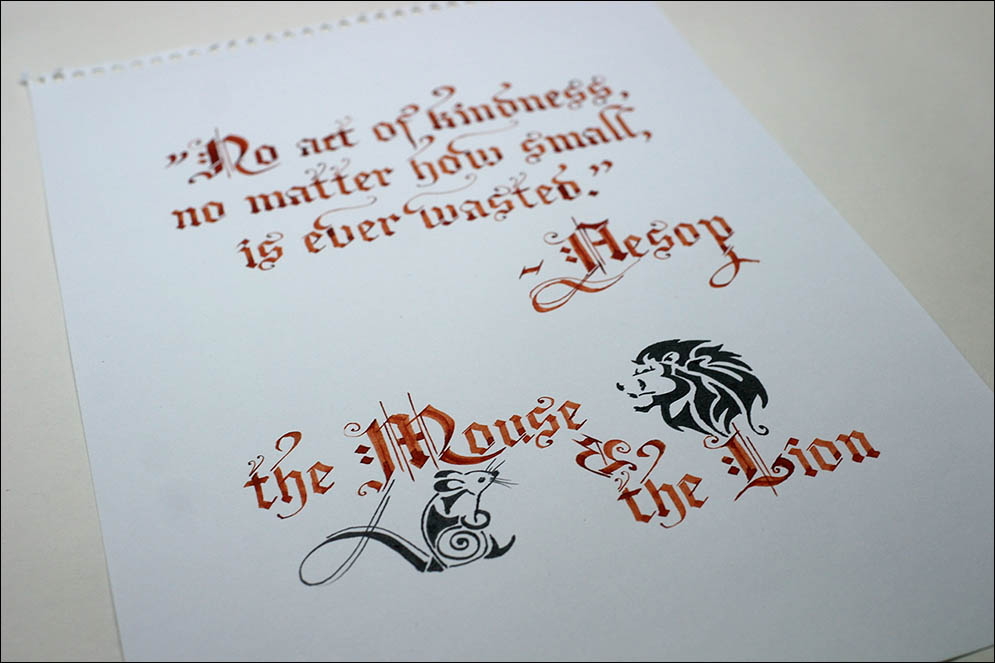 "No act of kindness,
no matter how small,
is ever wasted."
~ Aesop
the Mouse
&
the Lion